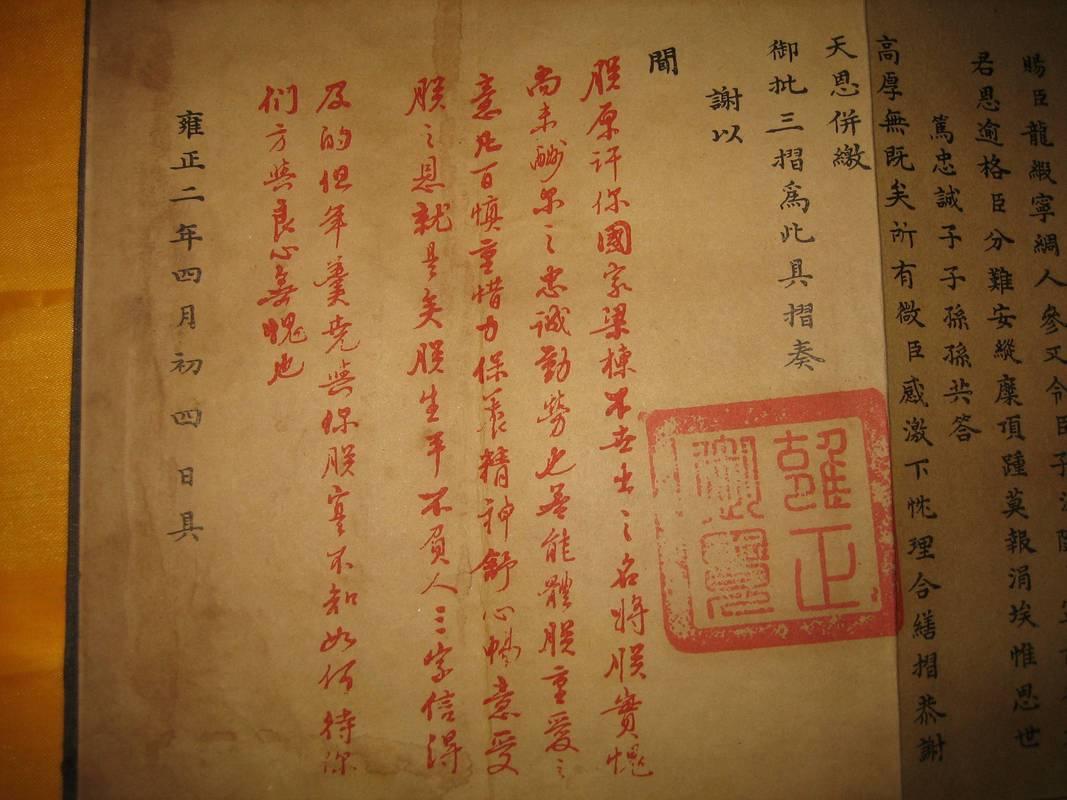 賜臣龍緞寧綢人參又令臣子
君恩逾格臣分難安縱糜頂踵莫報涓埃惟思世
篤忠誠子子孫孫共答
高厚無既矣所有微臣感激下忱理合繕摺恭謝
天恩併繳
御批三摺爲此具摺奏
謝以
聞
雍正
御
朕原許你國家梁棟不世出之名將朕實愧
尚未酬尔之忠誠勤勞也若能體朕重愛之
意凡百慎重惜力保養精神舒心暢意受
朕之恩就是矣朕生平不負人三字信得
及的但年羹堯與你朕實不知如何待你
们方與良心無愧也
雍正二年四月初四日具